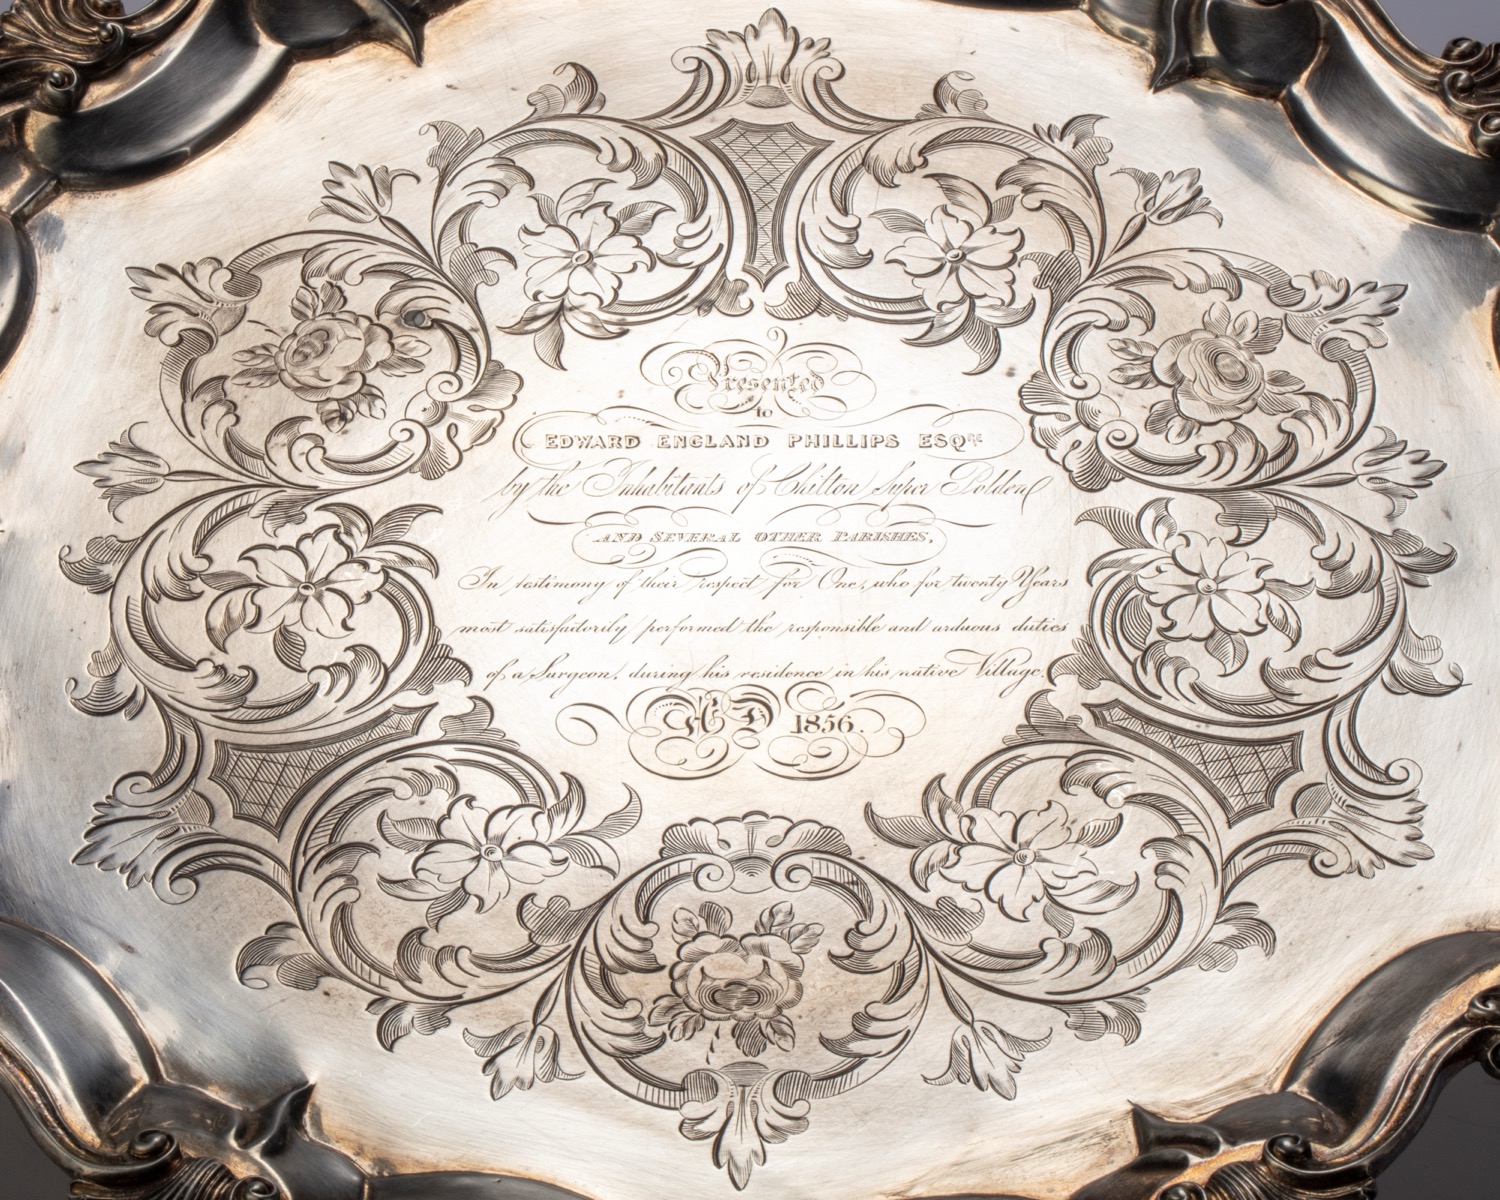 Presented
to
EDWARD ENGLAND PHILLIPS ESQRE
by the Inhabitants of Chilton super Polden
AND SEVERAL OTHER PARISHES,
In testimony of their respect for One, who for twenty Years
most satisfactorily performed the responsible and arduous duties
of a Surgeon, during his residence in his native Village.
AD 1856.